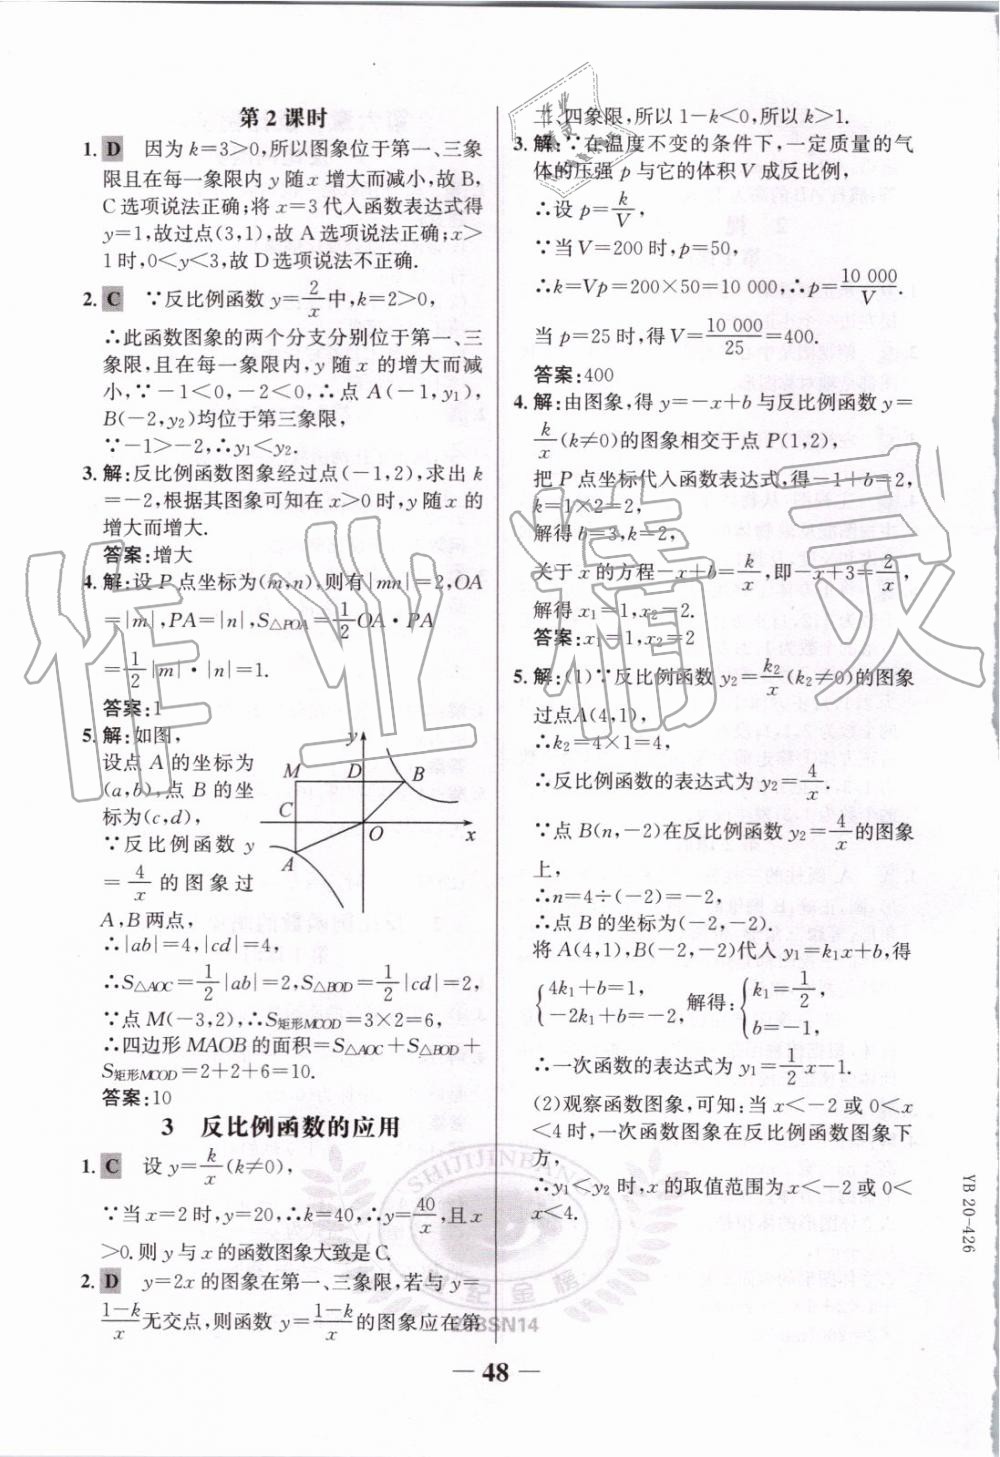 第2课时
1. D 因为k=3>0,所以图象位于第一、三象
限且在每一象限内y随x增大而减小,故B,
C选项说法正确;将x=3代入函数表达式得
y=1,故过点(3,1),故A选项说法正确;x>
1时,0<y<3,故D选项说法不正确.
2. C ∵反比例函数y=2/x中,k=2>0,
∴此函数图象的两个分支分别位于第一、三
象限,且在每一象限内,y随x的增大而减
小,∵-1<0,-2<0,∴点A(-1,y₁),
B(-2,y₂)均位于第三象限,
∵-1>-2,∴y₁<y₂.
3. 解:反比例函数图象经过点(-1,2),求出k
=-2,根据其图象可知在x>0时,y随x的
增大而增大.
答案:增大
4. 解:设P点坐标为(m,n),则有|mn|=2,OA
=|m|,PA=|n|,S△POA=1/2 OA·PA
=1/2|m|·|n|=1.
答案:1
5. 解:如图,
设点A的坐标为
(a,b),点B的坐
标为(c,d),
∵反比例函数y
=4/x的图象过
A,B两点,
y
M D B
C
O x
A
∴|ab|=4,|cd|=4,
∴S△AOC=1/2|ab|=2,S△BOD=1/2|cd|=2,
∵点M(-3,2),∴S矩形MCOD=3×2=6,
∴四边形MAOB的面积=S△AOC+S△BOD+
S矩形MCOD=2+2+6=10.
答案:10
3 反比例函数的应用
1. C 设y=k/x(k≠0),
∵当x=2时,y=20,∴k=40,∴y=40/x,且x
>0.则y与x的函数图象大致是C.
2. D y=2x的图象在第一、三象限,若与y=
(1-k)/x无交点,则函数y=(1-k)/x的图象应在第
二、四象限,所以1-k<0,所以k>1.
3. 解:∵在温度不变的条件下,一定质量的气
体的压强p与它的体积V成反比例,
∴设p=k/V,
∵当V=200时,p=50,
∴k=Vp=200×50=10 000,∴p=10 000/V.
当p=25时,得V=10 000/25=400.
答案:400
4. 解:由图象,得y=-x+b与反比例函数y=
k/x(k≠0)的图象相交于点P(1,2),
把P点坐标代入函数表达式,得-1+b=2,
k=1×2=2,
解得b=3,k=2,
关于x的方程-x+b=k/x,即-x+3=2/x,
解得x₁=1,x₂=2.
答案:x₁=1,x₂=2
5. 解:(1)∵反比例函数y₂=k₂/x(k₂≠0)的图象
过点A(4,1),
∴k₂=4×1=4,
∴反比例函数的表达式为y₂=4/x.
∵点B(n,-2)在反比例函数y₂=4/x的图象
上,
∴n=4÷(-2)=-2,
∴点B的坐标为(-2,-2).
将A(4,1),B(-2,-2)代入y₁=k₁x+b,得
{4k₁+b=1, -2k₁+b=-2, 解得:{k₁=1/2, b=-1,
∴一次函数的表达式为y₁=1/2x-1.
(2)观察函数图象,可知:当x<-2或0<x
<4时,一次函数图象在反比例函数图象下
方,
∴y₁<y₂时,x的取值范围为x<-2或0<
x<4.
YB 20-426
SHIJIJINBANG
世纪金榜
— 48 —
作业精灵